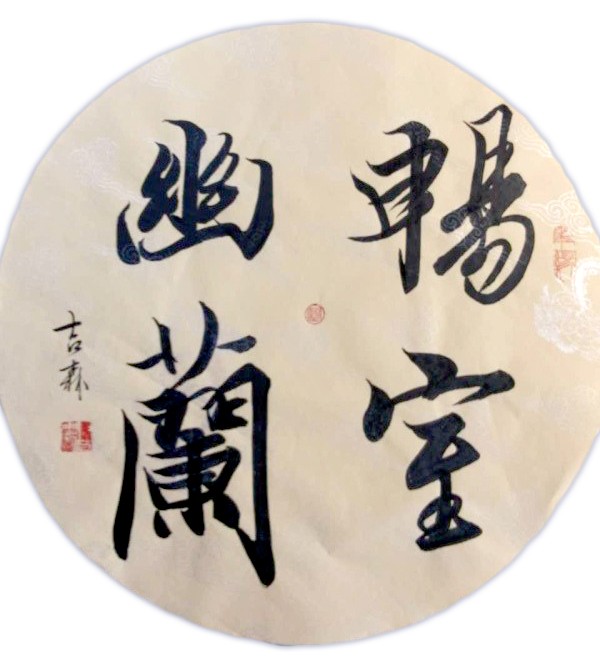 暢室
幽蘭
吉森